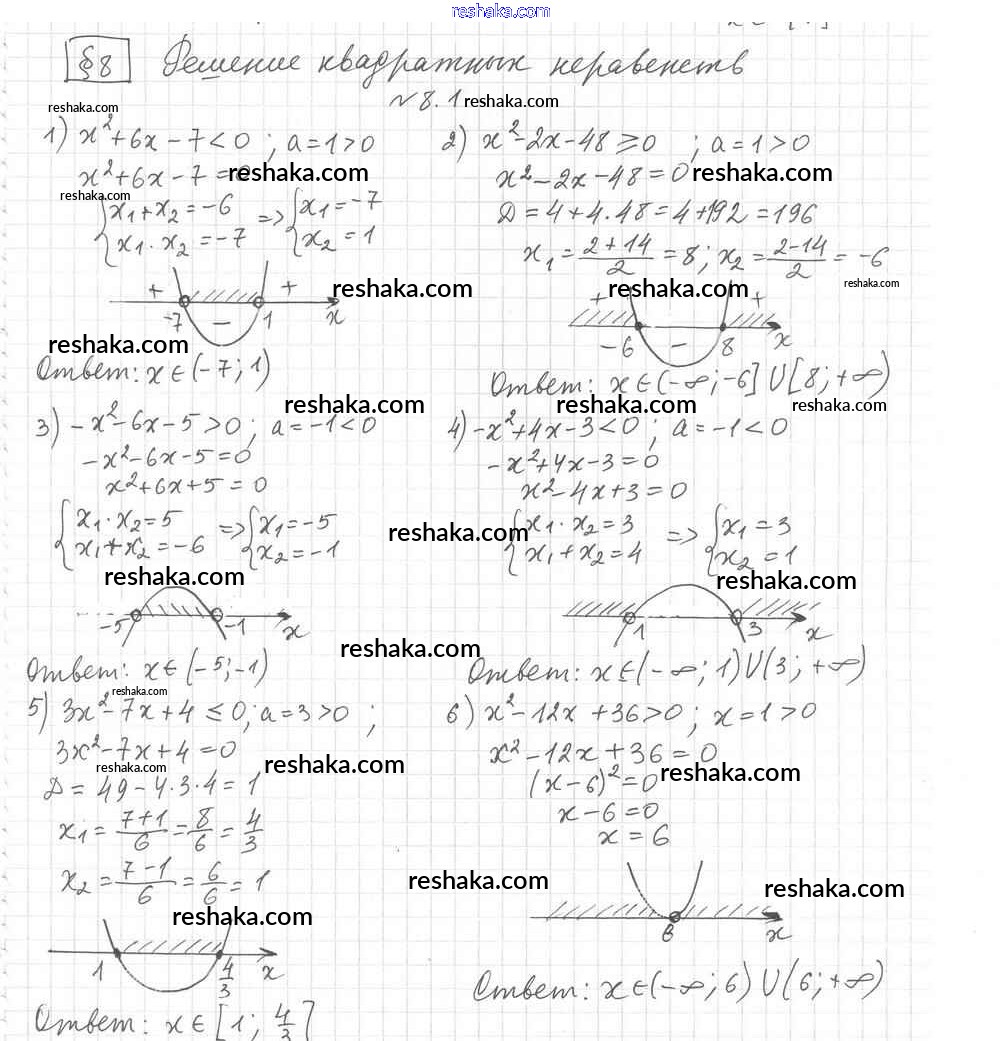 reshaka.com
§8 Решение квадратных неравенств
№ 8.1 reshaka.com
reshaka.com
1) x²+6x-7<0 ; a=1>0
x²+6x-7=0 reshaka.com
reshaka.com
{x₁+x₂=-6 => {x₁=-7
{x₁·x₂=-7 {x₂=1
+ + reshaka.com
-7 - 1 x
reshaka.com
Ответ: x∈(-7; 1)
2) x²-2x-48≥0 ; a=1>0
x²-2x-48=0 reshaka.com
D=4+4·48=4+192=196
x₁=(2+14)/2=8; x₂=(2-14)/2=-6
reshaka.com
reshaka.com
+ +
-6 - 8 x
Ответ: x∈(-∞;-6]U[8;+∞)
reshaka.com reshaka.com reshaka.com
3) -x²-6x-5>0; a=-1<0
-x²-6x-5=0
x²+6x+5=0
{x₁·x₂=5 => {x₁=-5
{x₁+x₂=-6 {x₂=-1
reshaka.com
reshaka.com
-5 -1 x
reshaka.com
Ответ: x∈(-5;-1)
4) -x²+4x-3<0 ; a=-1<0
-x²+4x-3=0
x²-4x+3=0
{x₁·x₂=3 => {x₁=3
{x₁+x₂=4 {x₂=1
reshaka.com
1 3 x
Ответ: x∈(-∞; 1)U(3; +∞)
reshaka.com
5) 3x²-7x+4≤0; a=3>0 ;
3x²-7x+4=0
reshaka.com reshaka.com
D=49-4·3·4=1
x₁=(7+1)/6=8/6=4/3
x₂=(7-1)/6=6/6=1
reshaka.com
1 4/3 x
Ответ: x∈[1; 4/3]
6) x²-12x+36>0; x=1>0
x²-12x+36=0
(x-6)²=0 reshaka.com
x-6=0
x=6
reshaka.com reshaka.com
6 x
Ответ: x∈(-∞;6)U(6;+∞)